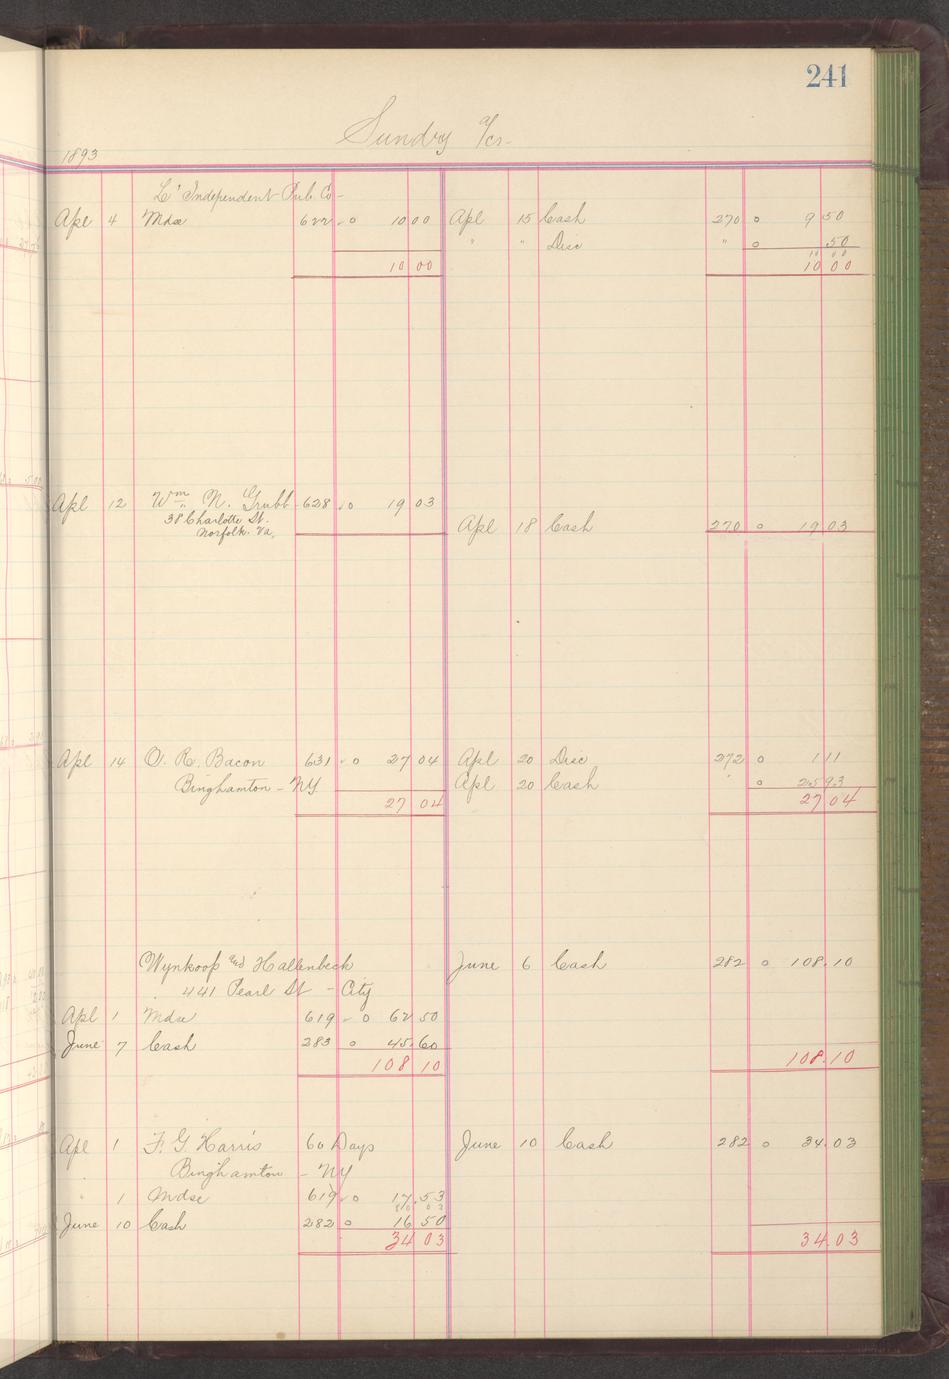 241
Sundry a/cs -
1893
L'Independent Pub Co -
Apl 4 Mdse 622 o 10 00 Apl 15 Cash 270 o 9 50
" " Disc " o 50
10 00
10 00 10 00
Apl 12 Wm. N. Grubb 628 o 19 03
38 Charlotte St.
Apl 18 Cash 270 o 19 03
Norfolk. Va.
Apl 14 O. R. Bacon 631 o 27 04 Apl 20 Disc 272 o 1 11
Binghamton - NY Apl 20 Cash " o 25 93
27 04 27 04
Wynkoop and Hallenbeck June 6 Cash 282 o 108.10
441 Pearl St - City
Apl 1 Mdse 619 o 62 50
June 7 Cash 283 o 45.60
108 10 108.10
Apl 1 F. G. Harris 60 Days June 10 Cash 282 o 34.03
Binghamton - NY
1 Mdse 619 o 17.53
June 10 Cash 282 o 16 50
34 03 34.03